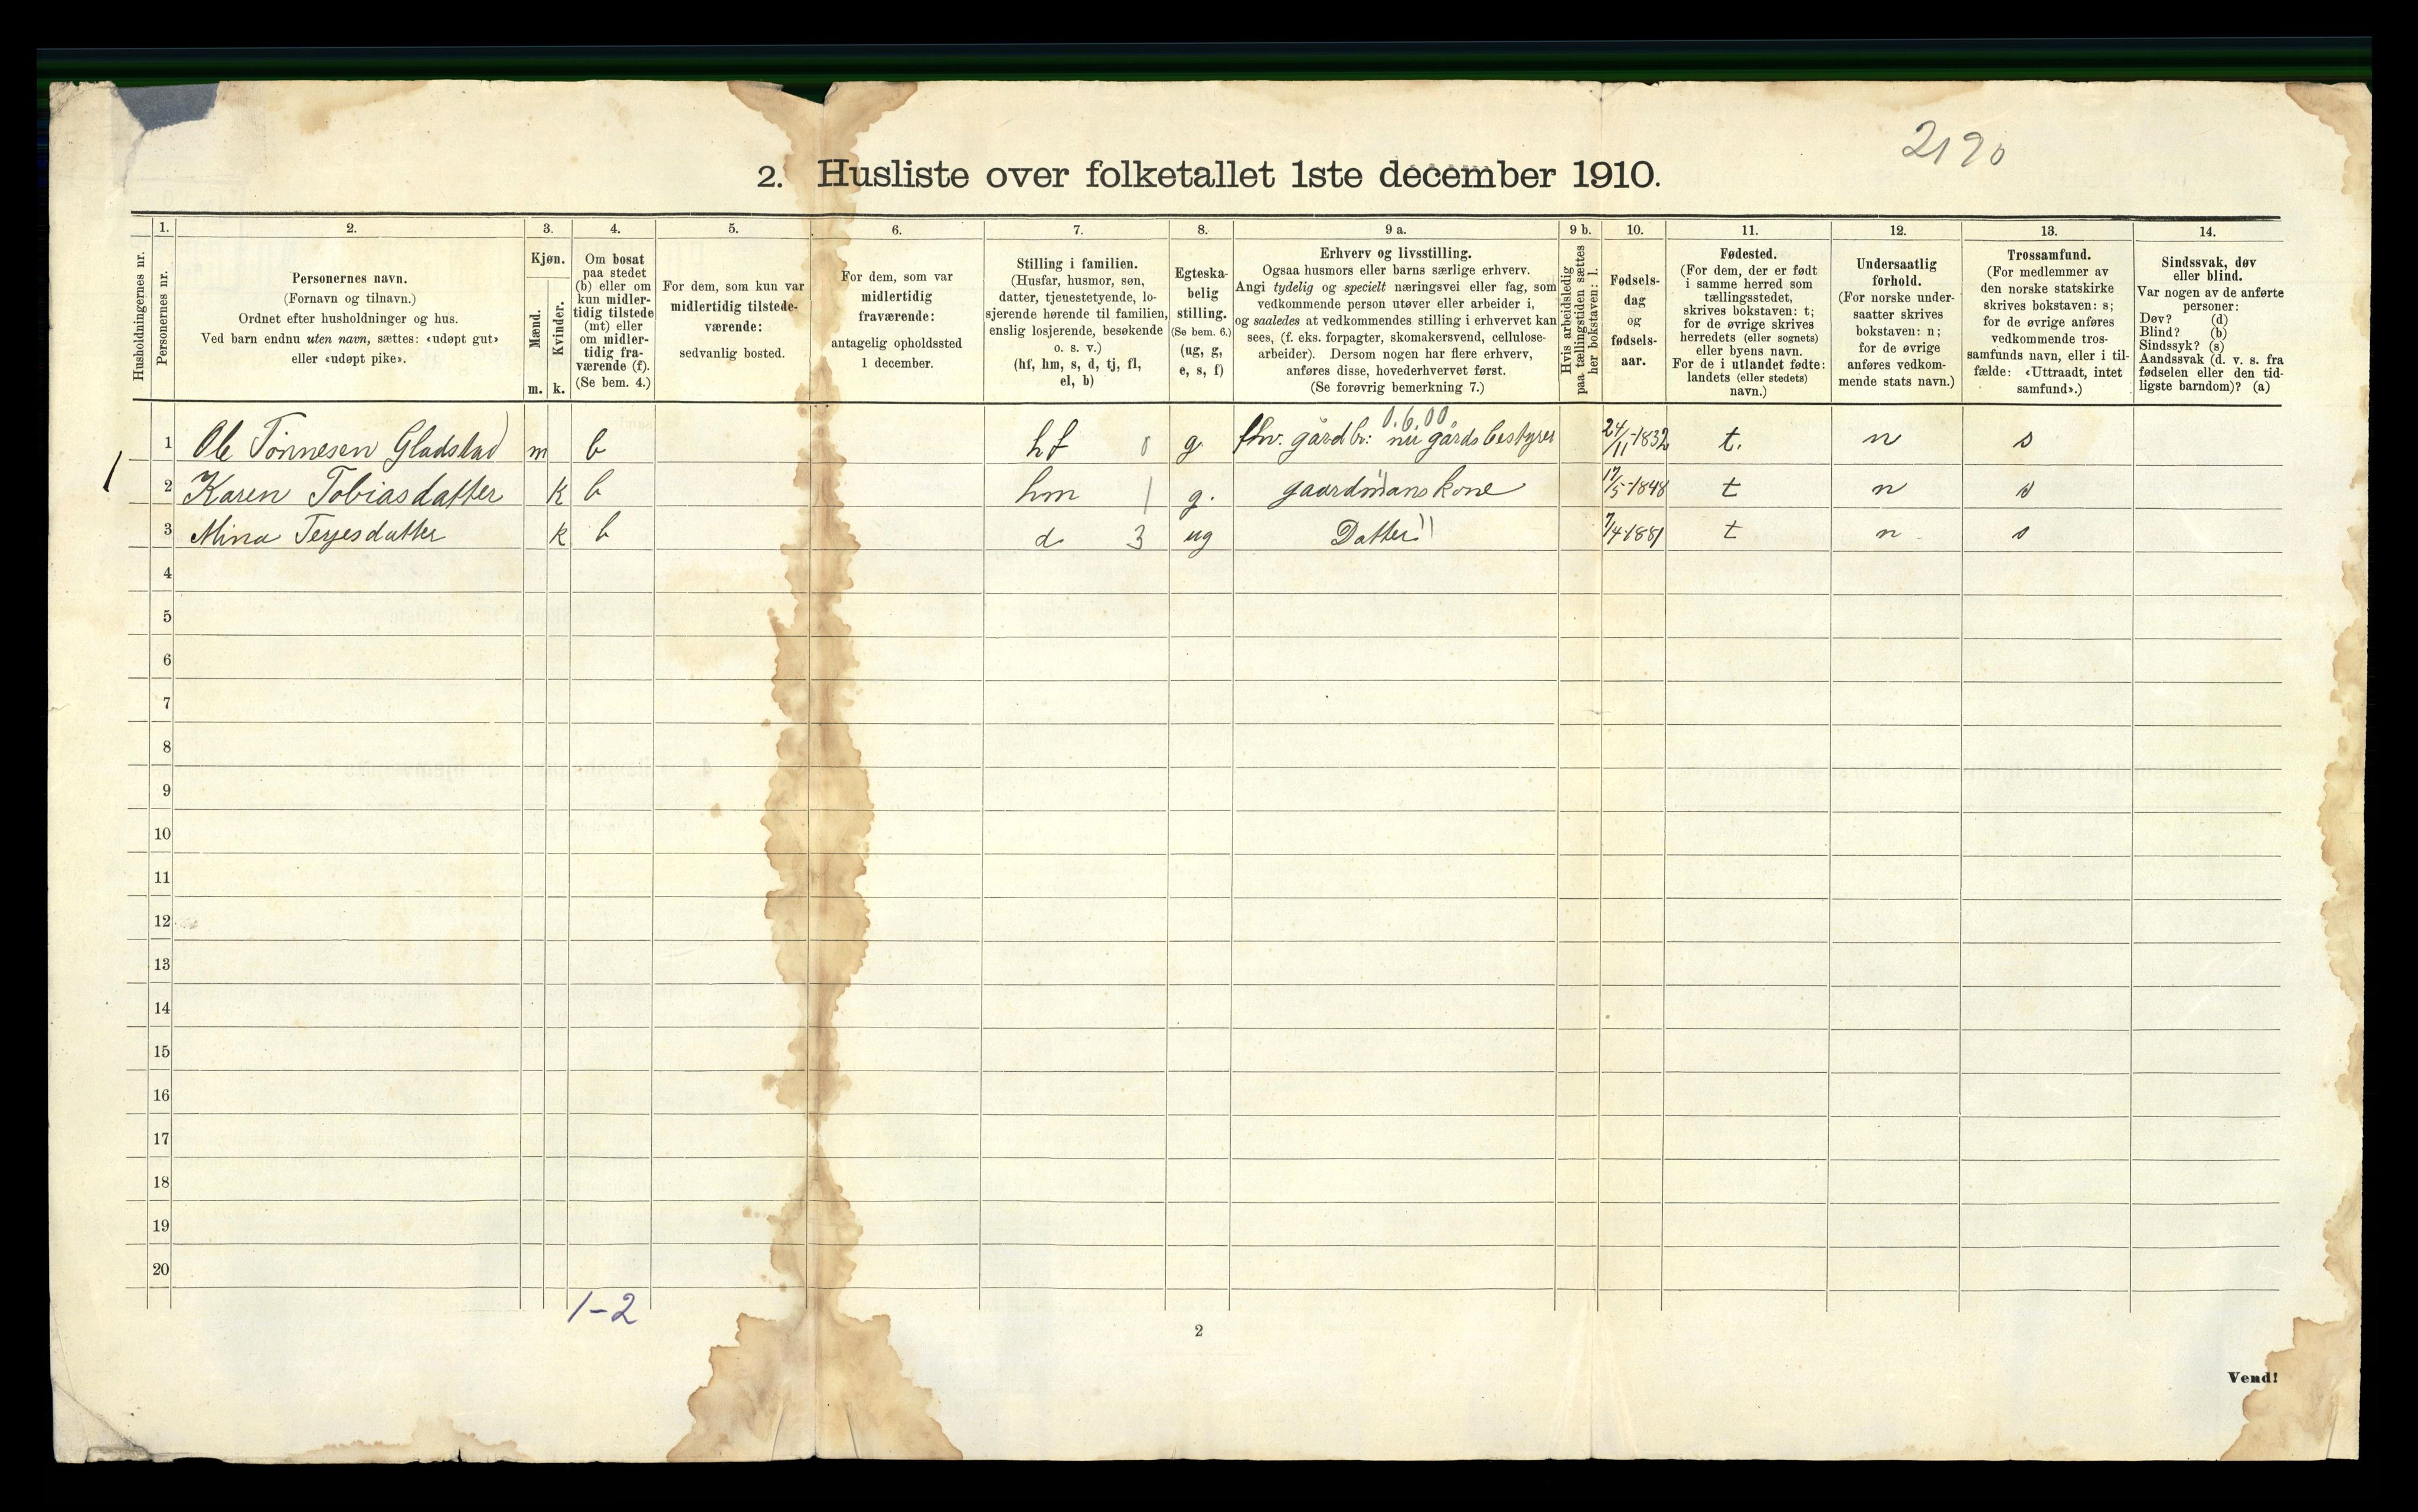 2190
2. Husliste over folketallet 1ste december 1910.
Husholdningernes nr.
1.
Personernes nr.
2.
Personernes navn.
(Fornavn og tilnavn.)
Ordnet efter husholdninger og hus.
Ved barn endnu uten navn, sættes: «udøpt gut»
eller «udøpt pike».
3.
Kjøn.
Mænd.
Kvinder.
m. k.
4.
Om bosat
paa stedet
(b) eller om
kun midler-
tidig tilstede
(mt) eller
om midler-
tidig fra-
værende (f).
(Se bem. 4.)
5.
For dem, som kun var
midlertidig tilstede-
værende:
sedvanlig bosted.
6.
For dem, som var
midlertidig
fraværende:
antagelig opholdssted
1 december.
7.
Stilling i familien.
(Husfar, husmor, søn,
datter, tjenestetyende, lo-
sjerende hørende til familien,
enslig losjerende, besøkende
o. s. v.)
(hf, hm, s, d, tj, fl,
el, b)
8.
Egteska-
belig
stilling.
(Se bem. 6.)
(ug, g,
e, s, f)
9 a.
Erhverv og livsstilling.
Ogsaa husmors eller barns særlige erhverv.
Angi tydelig og specielt næringsvei eller fag, som
vedkommende person utøver eller arbeider i,
og saaledes at vedkommendes stilling i erhvervet kan
sees, (f. eks. forpagter, skomakersvend, cellulose-
arbeider). Dersom nogen har flere erhverv,
anføres disse, hovederhvervet først.
(Se forøvrig bemerkning 7.)
9 b.
Hvis arbeidsledig
paa tællingstiden sættes
her bokstaven: l.
10.
Fødsels-
dag
og
fødsels-
aar.
11.
Fødested.
(For dem, der er født
i samme herred som
tællingsstedet,
skrives bokstaven: t;
for de øvrige skrives
herredets (eller sognets)
eller byens navn.
For de i utlandet fødte:
landets (eller stedets)
navn.)
12.
Undersaatlig
forhold.
(For norske under-
saatter skrives
bokstaven: n;
for de øvrige
anføres vedkom-
mende stats navn.)
13.
Trossamfund.
(For medlemmer av
den norske statskirke
skrives bokstaven: s;
for de øvrige anføres
vedkommende tros-
samfunds navn, eller i til-
fælde: «Uttraadt, intet
samfund».)
14.
Sindssvak, døv
eller blind.
Var nogen av de anførte
personer:
Døv? (d)
Blind? (b)
Sindssyk? (s)
Aandssvak (d. v. s. fra
fødselen eller den tid-
ligste barndom)? (a)
0.6.00
1 Ole Tønnesen Gladstad m b hf 0 g fhv. gårdbr: nu gårdsbestyrer 24/11-1832 t. n s
1
2 Karen Tobiasdatter k b hm 1 g. gaardmans kone " 17/5-1848 t n s
3 Mina Terjesdatter k b d 3 ug Datter " 7/4-1881 t n s
4
5
6
7
8
9
10
11
12
13
14
15
16
17
18
19
20
1-2
2
Vend!